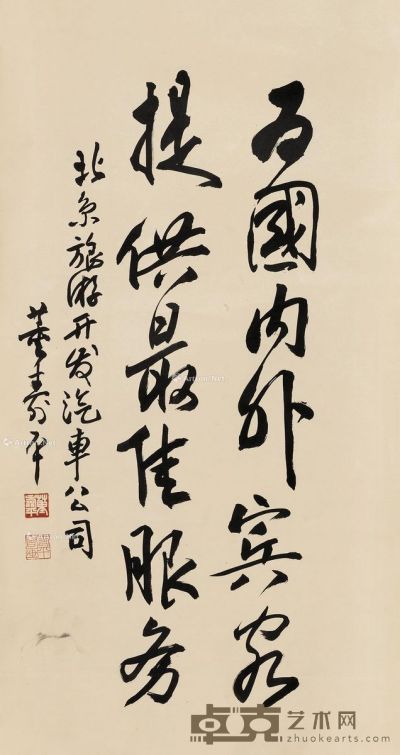 为國内外宾客
提供最佳服务
北京旅游开发汽車公司
董寿平
卓克艺术网
zhuokearts.com